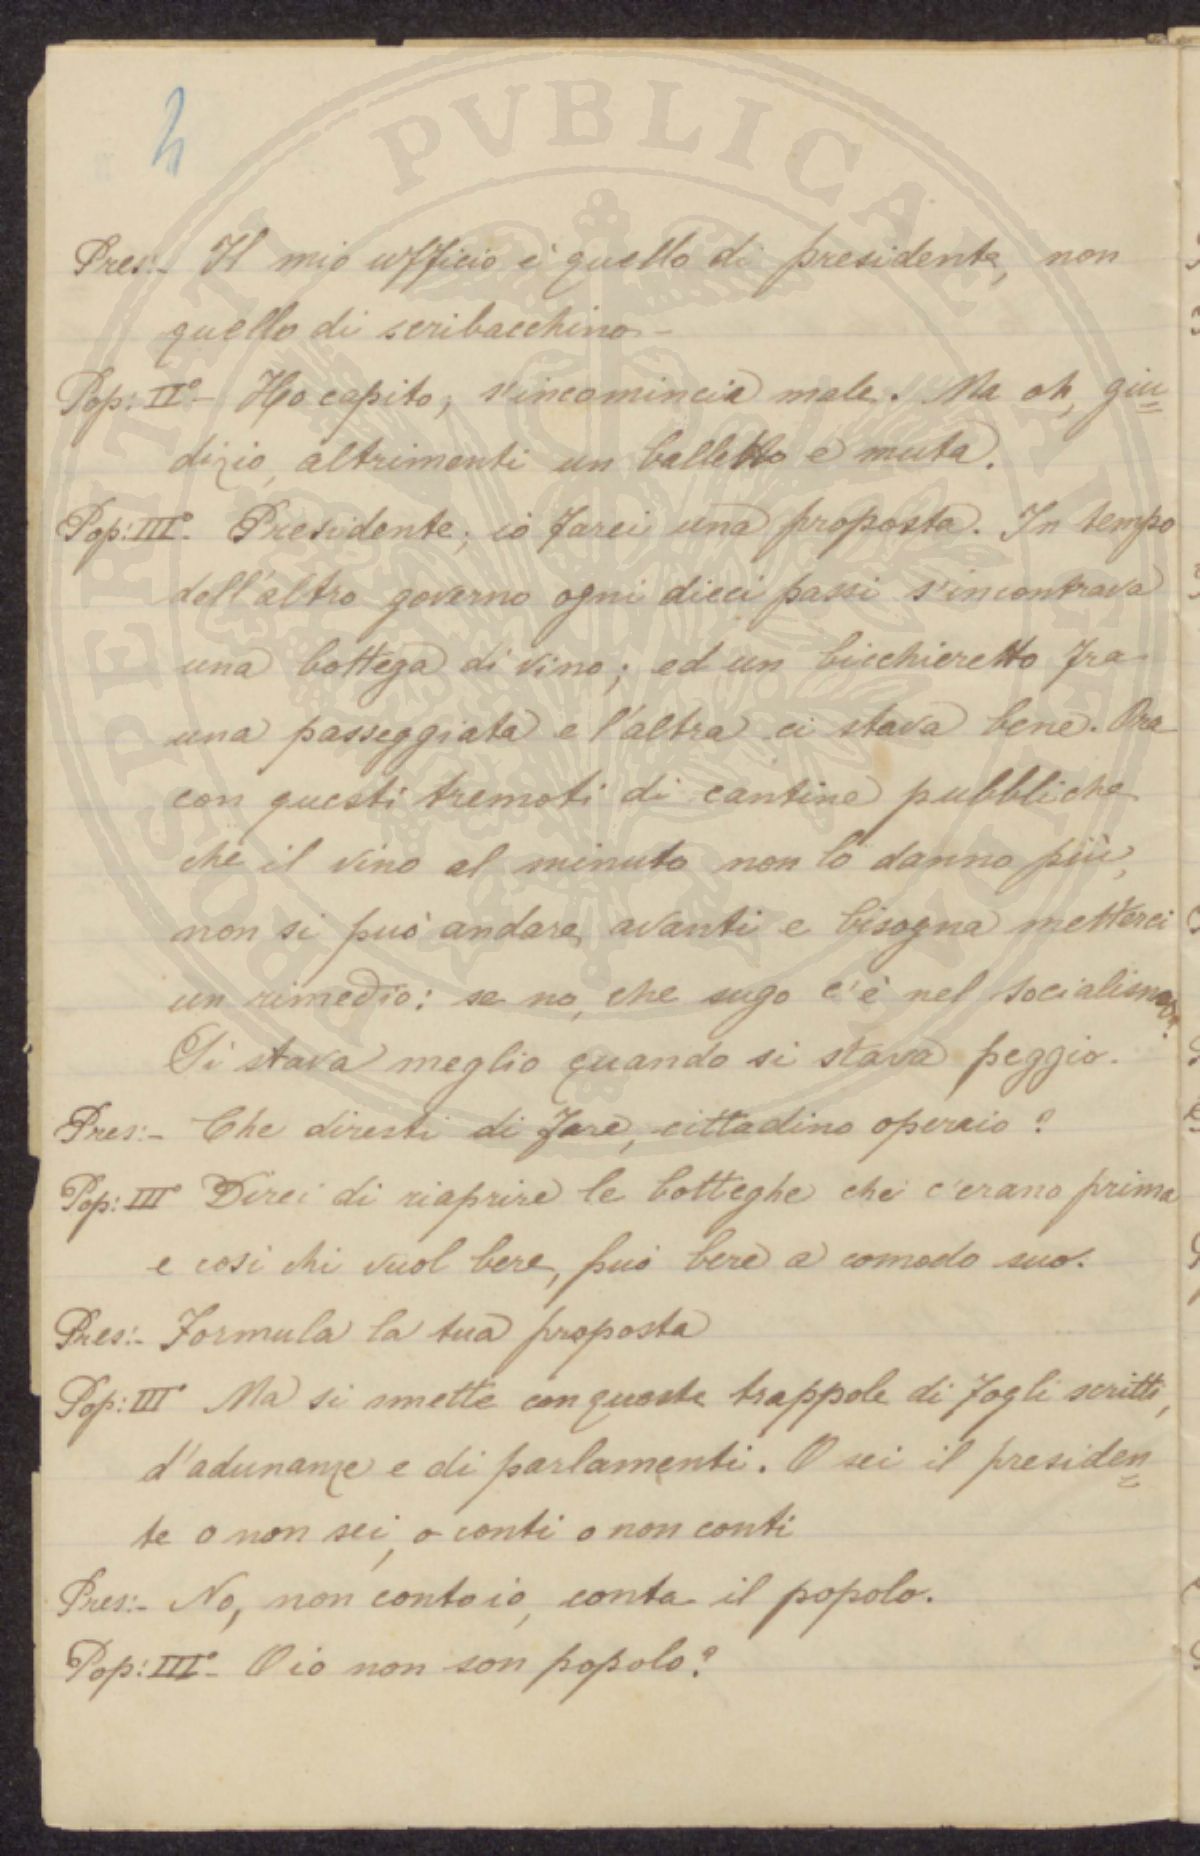 PVBLICAE VTILITATI PROSPERITATI
4
Pres:- Il mio ufficio è quello di presidente, non
quello di scribacchino-
Pop: II°- Ho capito, s'incomincia male. Ma oh, giu=
dizio, altrimenti un balletto e muta.
Pop: III°- Presidente, io farei una proposta. In tempo
dell'altro governo ogni dieci passi s'incontrava
una bottega di vino; ed un bicchieretto fra
una passeggiata e l'altra ci stava bene. Ora
con questi tremoti di cantine pubbliche
che il vino al minuto non lo danno più,
non si può andare avanti e bisogna metterci
un rimedio: se no, che sugo c'è nel socialismo?
Si stava meglio quando si stava peggio.
Pres:- Che diresti di fare, cittadino operaio?
Pop: III° Direi di riaprire le botteghe che c'erano prima
e così chi vuol bere, può bere a comodo suo.
Pres:- Formula la tua proposta
Pop: III° Ma si smette con queste trappole di fogli scritti,
d'adunanze e di parlamenti. O sei il presiden=
te o non sei, o conti o non conti
Pres:- No, non conto io, conta il popolo.
Pop: III°- O io non son popolo?